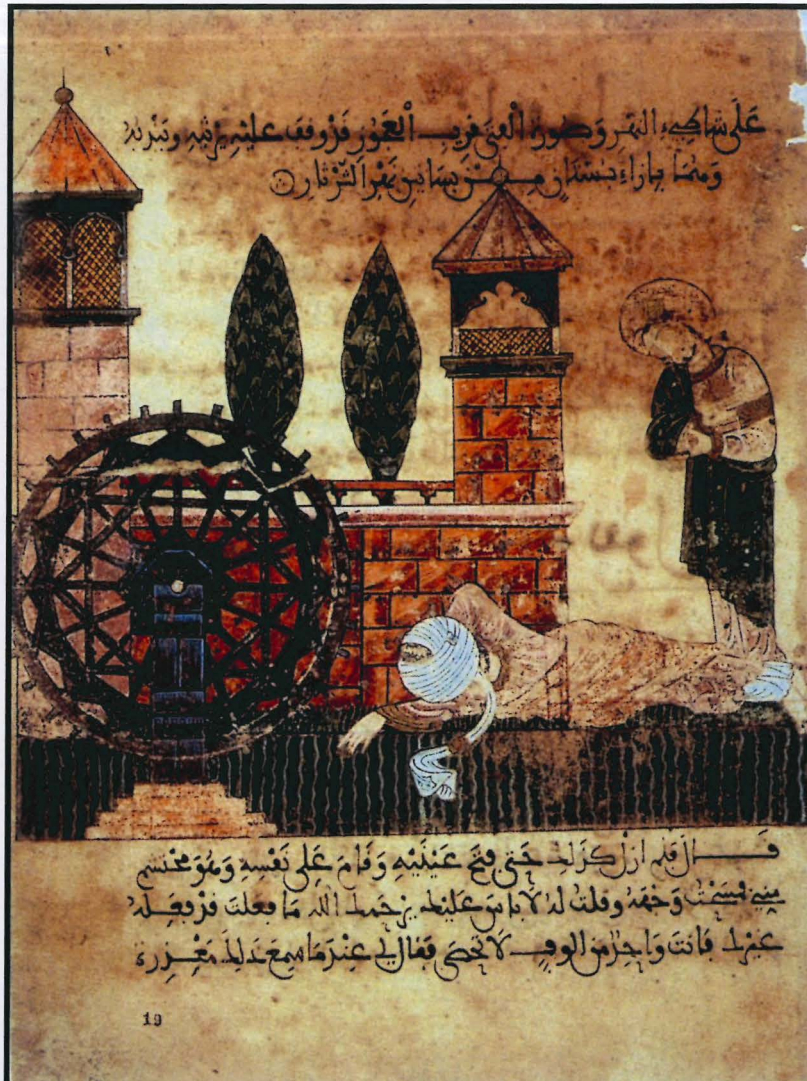 عَلَى شَاطِىءِ النهر وَصورة الْفتَى قريب الْعَجُوز قد وقف عليْهِ يرثيه ويندبه
وَهُمَا بإزاء بُسْتَان مِــن بساتين نهْر الثّرْثار
قَــال فلم ازلْ كذلك حَتى فتح عَيْنَيْهِ وَقَامَ عَلى نَفْسِهِ وَهُوَ محْتشم
مِنِي فمسَحْت وَجْهَهُ وقلتُ لهُ لَا باس عَليْك يرْحمك الله مَا فعلت قد فعلهُ
غيْرك فانت وَاحد من الوف لَا تحْصَى فقال لي عنْدمَا سمعَ ذلِكَ مَعْذرة
19